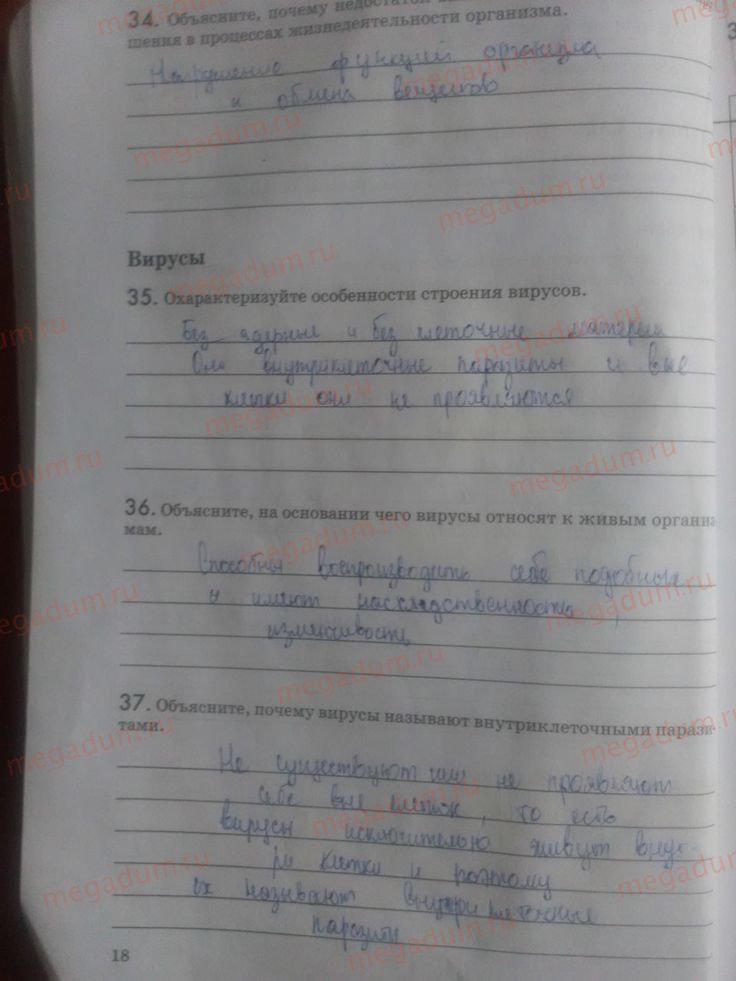 34. Объясните, почему недостаток
шения в процессах жизнедеятельности организма.
Нарушение функций организма
и обмена веществ
Вирусы
35. Охарактеризуйте особенности строения вирусов.
Без ядерные и без клеточные материи
Они внутриклеточные паразиты и вне
клетки они не проявляются
36. Объясните, на основании чего вирусы относят к живым организ-
мам.
Способны воспроизводить себе подобных
и имеют насследственность,
изменчивость
37. Объясните, почему вирусы называют внутриклеточными парази-
тами.
Не существуют или не проявляют
себя вне клеток, то есть
вирусы исключительно живут внут-
ри клетки и поэтому
их называют внутриклеточные
паразиты
18
megadum.ru